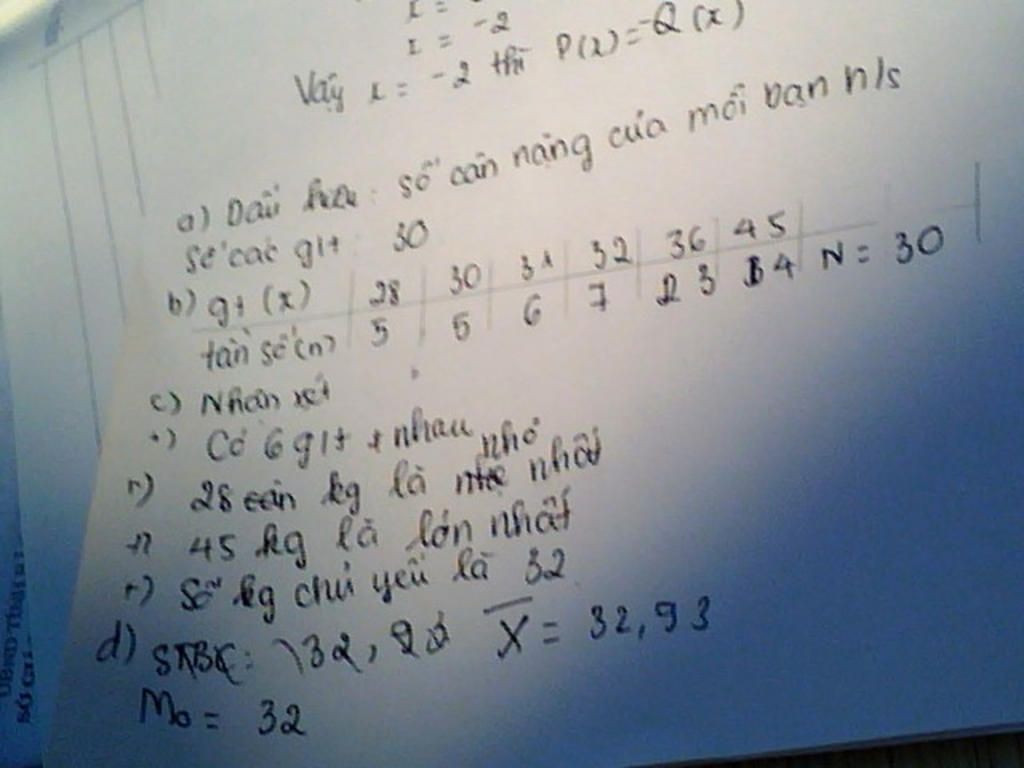 x = -2
Vậy x = -2 thì P(x) = -Q(x)
a) Dấu hiệu: số cân nặng của mỗi bạn h/s
số các g/t 30
b) gt (x) 28 30 31 32 36 45
tần số (n) 5 5 6 7 3 4 N = 30
c) Nhận xét
+) Có 6 g/t ≠ nhau
+) 28 cân kg là nhỏ nhất
+) 45 kg là lớn nhất
+) Số kg chủ yếu là 32
d) STBC: 32, X̅ = 32,93
M₀ = 32
UBND TỈNH